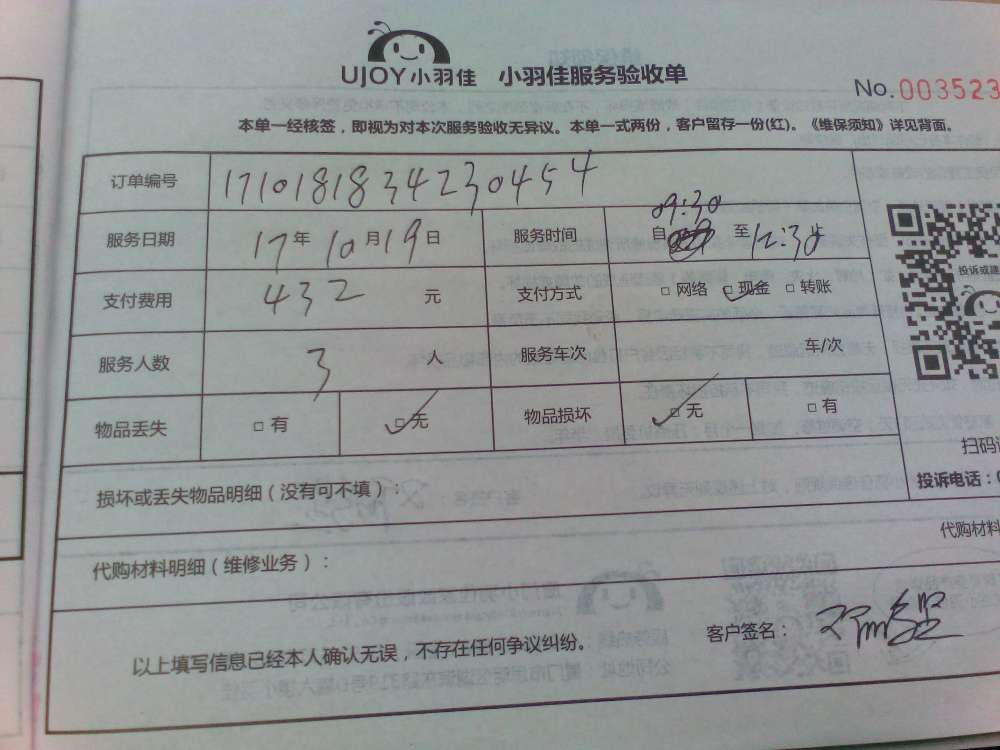 UJOY小羽佳 小羽佳服务验收单
No.003523
本单一经核签，即视为对本次服务验收无异议。本单一式两份，客户留存一份(红)。《维保须知》详见背面。
订单编号 1710181834230454
服务日期 17年10月19日 服务时间 自09:30至12:30
支付费用 432元 支付方式 □网络 ☑现金 □转账
服务人数 3人 服务车次 车/次
物品丢失 □有 ☑无 物品损坏 ☑无 □有
投诉或建
扫码
投诉电话：
损坏或丢失物品明细（没有可不填）：
代购材料
代购材料明细（维修业务）：
以上填写信息已经本人确认无误，不存在任何争议纠纷。
客户签名：